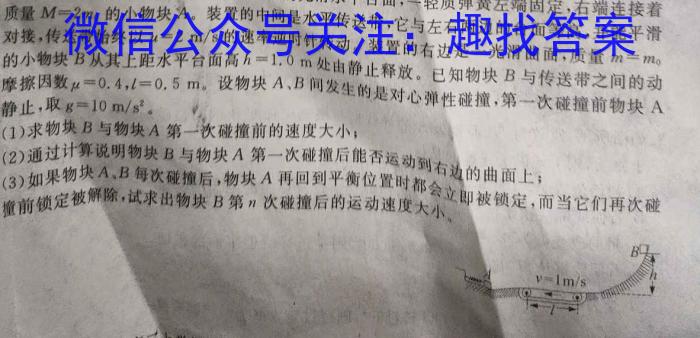 轻质弹簧左端固定,右端连接着
质量M=2m 的小物块A。装置的中间是水平传送带,它与左右
对接,传 m/s的速率 装置的右边是 光滑曲面,质量m=m₀
微信公众号关注:趣找答案
的小物块B从其上距水平台面高h=1.0 m处由静止释放。已知物块B与传送带之间的动
摩擦因数μ=0.4,l=0.5 m。设物块A、B间发生的是对心弹性碰撞,第一次碰撞前物块A
静止,取g=10 m/s²。
(1)求物块B与物块A第一次碰撞前的速度大小;
(2)通过计算说明物块B与物块A第一次碰撞后能否运动到右边的曲面上;
(3)如果物块A、B每次碰撞后,物块A再回到平衡位置时都会立即被锁定,而当它们再次碰
撞前锁定被解除,试求出物块B第n次碰撞后的运动速度大小。
B
h
v=1m/s
l